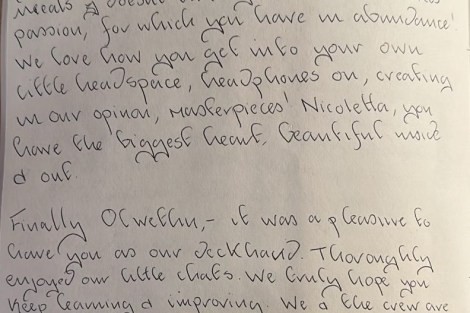 meals & doesn't
passion, for which you have in abundance!
We love how you get into your own
little headspace, headphones on, creating
in our opinion, masterpieces! Nicoletta, you
have the biggest heart, beautiful inside
& out.
Finally Olwethu, - it was a pleasure to
have you as our deckhand. Thoroughly
enjoyed our little chats. We truly hope you
keep learning & improving. We & the crew are